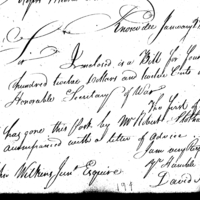 Knoxville January
Sir I inclosed is a Bill for Four
hundred twelve Dollars and twelve Cents
Honorable Secretary of War
The third of
has gone this Post by Mr
accompanied with a letter of advice
I am
Humble
Wilkins Junr Esquire
David